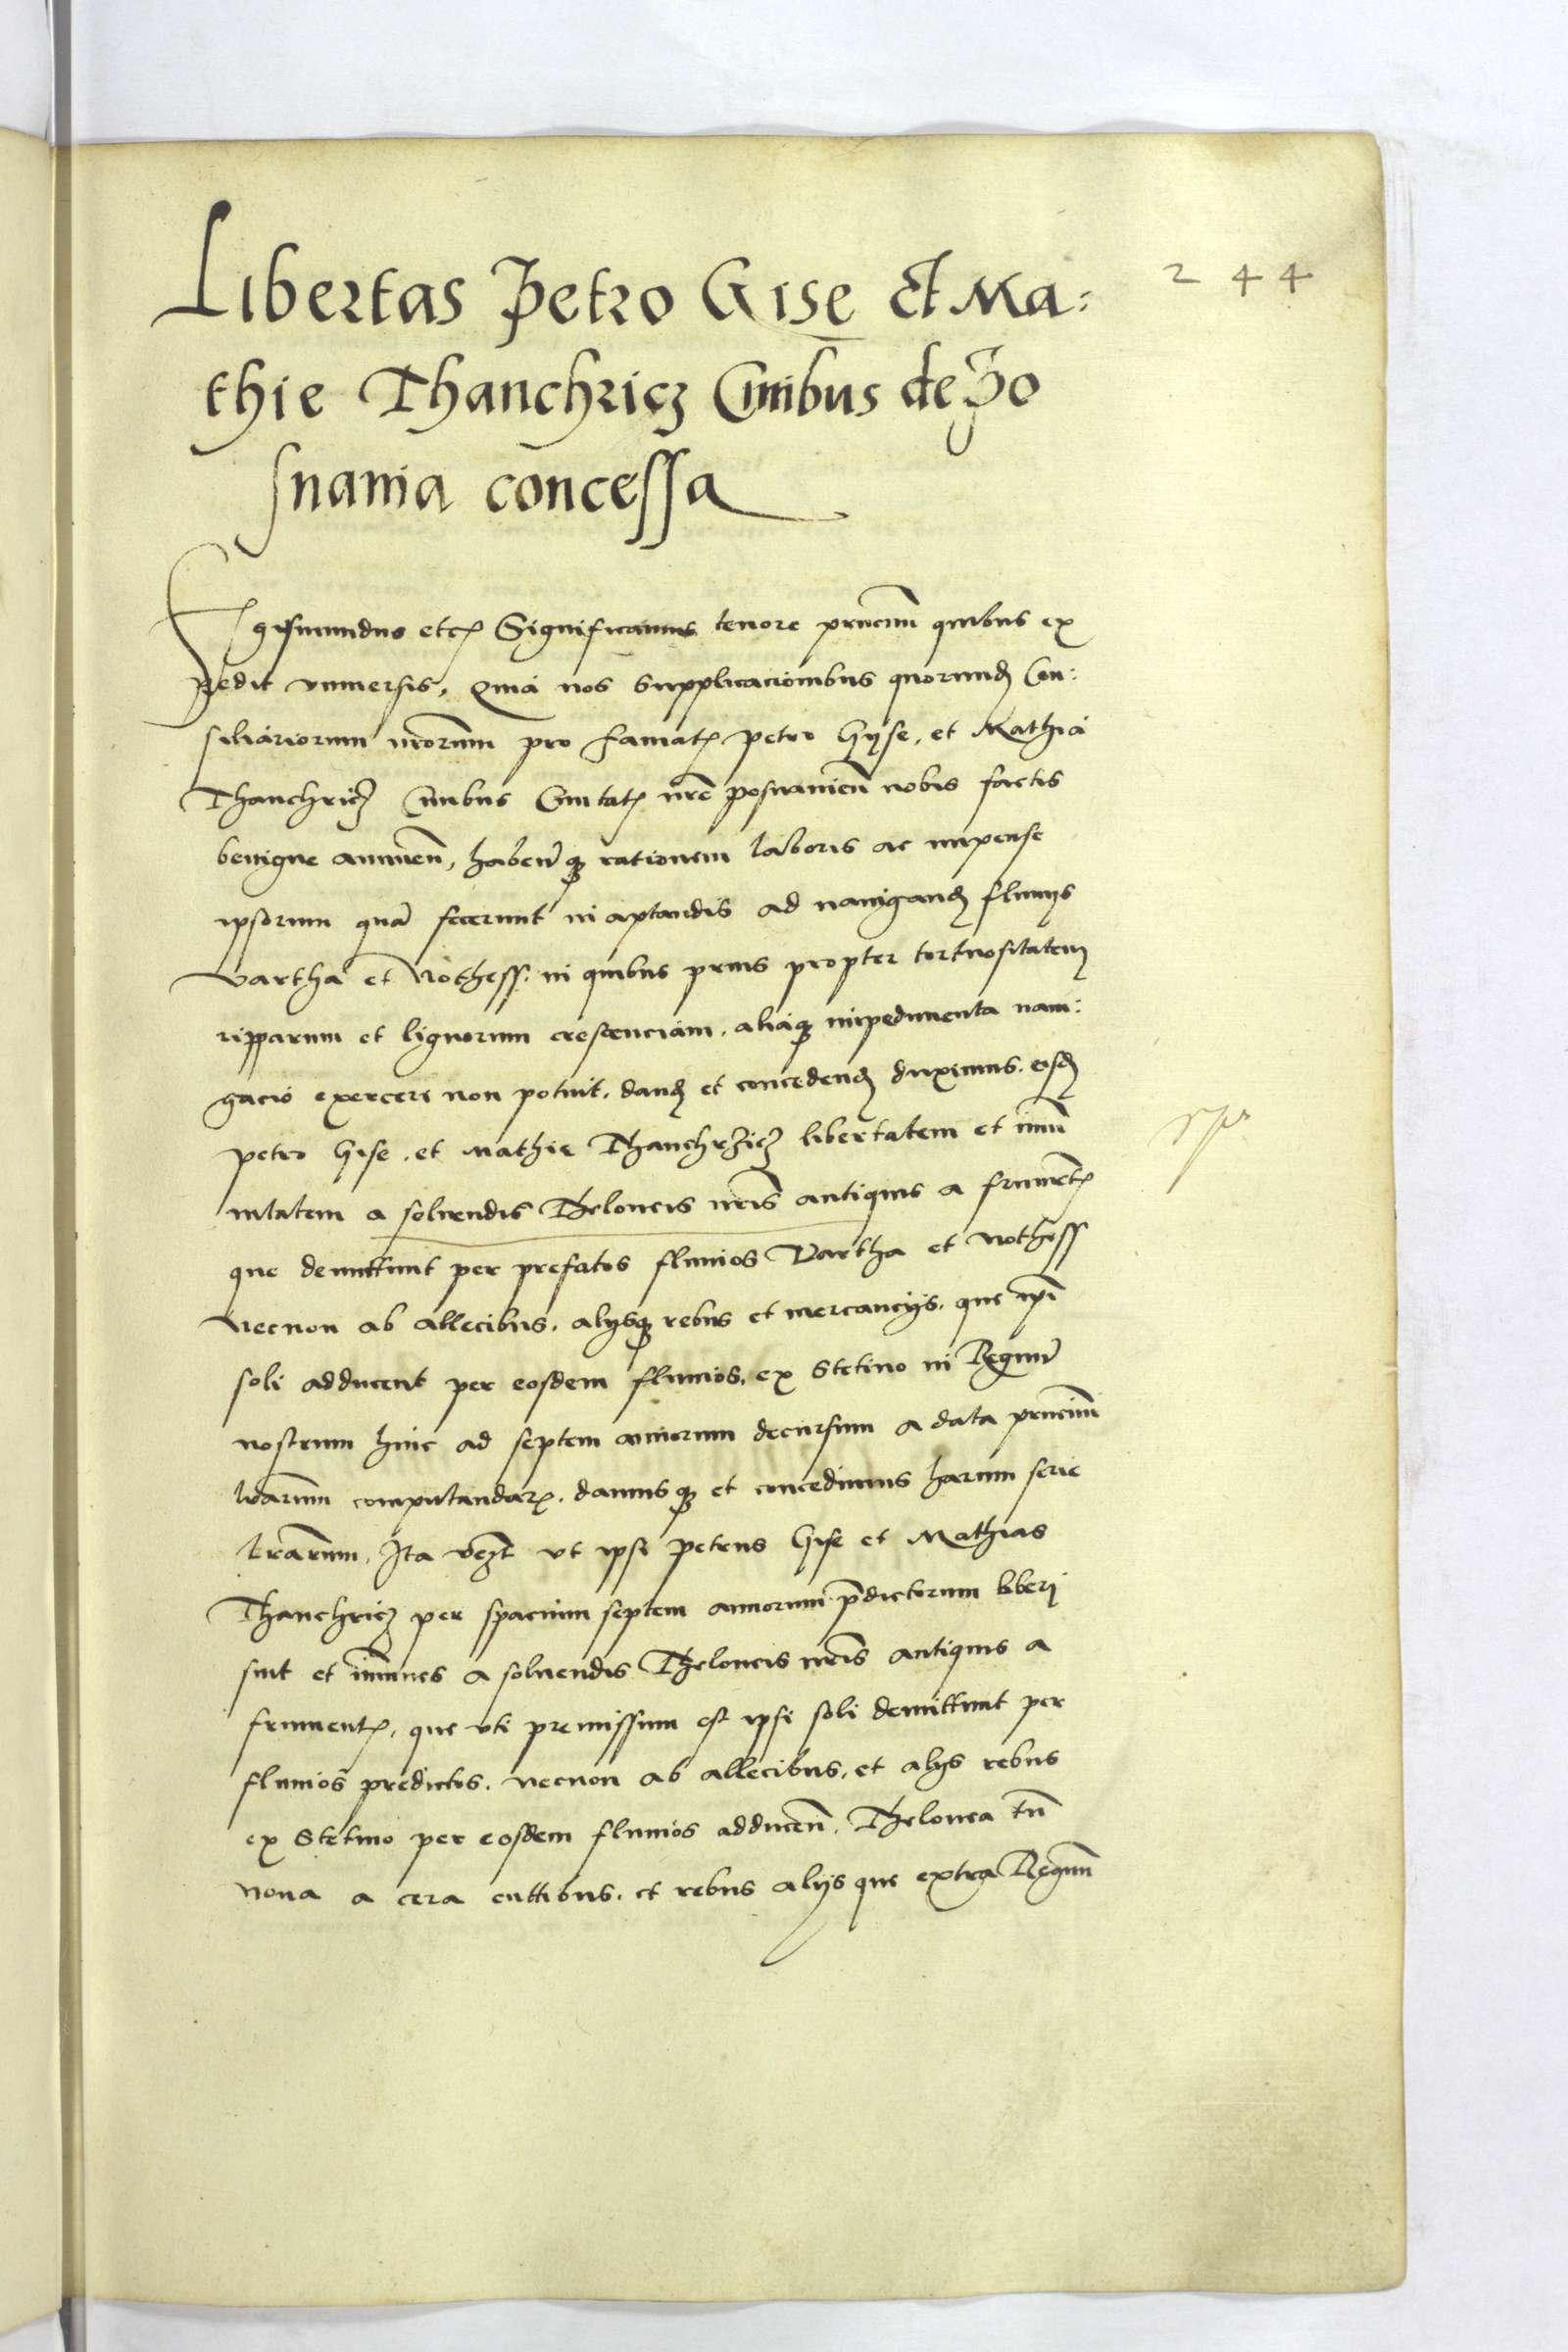 244
Libertas Petro Gise Et Ma:
thie Thanchricz Ciuibus de Po
snania concessa
Sigismundus etc Significamus tenore pñcium quibus ex
pedit vniuersis, Quia nos Supplicacionibus quorund Con:
siliariorum nrorum pro famat Petro Gyse, et Mathia
Thanchricz Ciuibus Ciuitat nre posnanien nobis factis
benigne annuen, habenq rationem laboris ac impense
ipsorum quã fecerunt in aptandis ad nauigand fluuijs
Vartha et Nothess. in quibus prius propter tortuositatem
ripparum et lignorum crescenciam, aliaq impedimenta naui:
gacio exerceri non potuit, dand et concedend duximus, eisd
Petro Gise, et Mathie Thanchrzicz libertatem et imu
nitatem a soluendis Theloneis nris antiquis a frument
que demittunt per prefatos fluuios Vartha et Nothess
Necnon ab allecibus, alysq rebus et mercancijs, que ipi
soli adducent per eosdem fluuios, ex Stetino in Regnũ
nostrum hinc ad septem annorum decursum a data pñcium
lrarum computandar, damusq et concedimus harum serie
lrarum, Ita vezt vt ipsi Petrus Gise et Mathias
Thanchricz per spacium septem annorum pdictorum liberi
sint et imunes a soluendis Theloneis nris antiquis a
frument, que vti premissum est ipsi soli demittunt per
fluuios predictos, necnon ab allecibus, et alys rebus
ex Stetino per eosdem fluuios adducen, Thelonea tñ
noua a cera cuttibus, et rebus alijs que extra Regnum